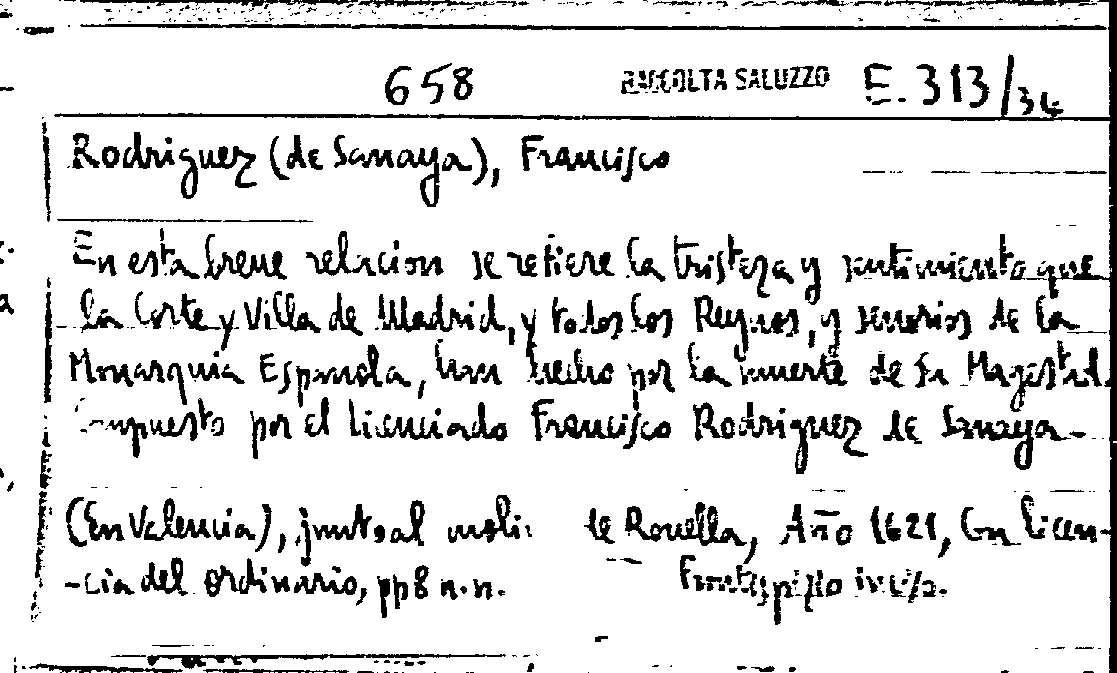 658 RACCOLTA SALUZZO E. 313/34
Rodriguez (de Sanaya), Francisco
En esta breue relacion se refiere la tristeza y sentimiento que
la Corte y Villa de Madrid, y todos los Reynos, y senorios de la
Monarquia Espanola, han hecho por la muerte de Su Magestad.
Compuesto por el licenciado Francisco Rodriguez de Sanaya-
(En Valencia), junto al moli de Rouella, Año 1621, Con licen-
-cia del ordinario, pp 8 n.n. Frontespizio inciso.